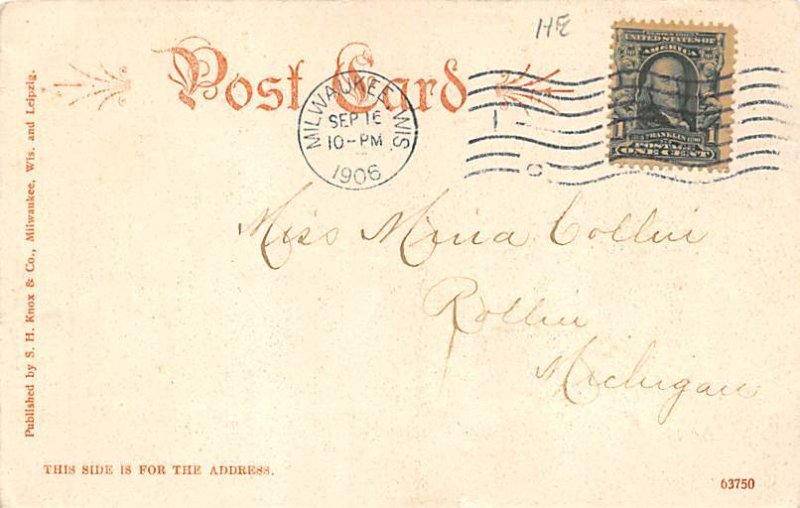 HE
Post Card
MILWAUKEE, WIS.
SEP 16
10-PM
1906
UNITED STATES OF
AMERICA
1 FRANKLIN 1
POSTAGE
ONE CENT
Miss Mina Collin
Rollin
Michigan
Published by S. H. Knox & Co., Milwaukee, Wis. and Leipzig.
THIS SIDE IS FOR THE ADDRESS.
63750